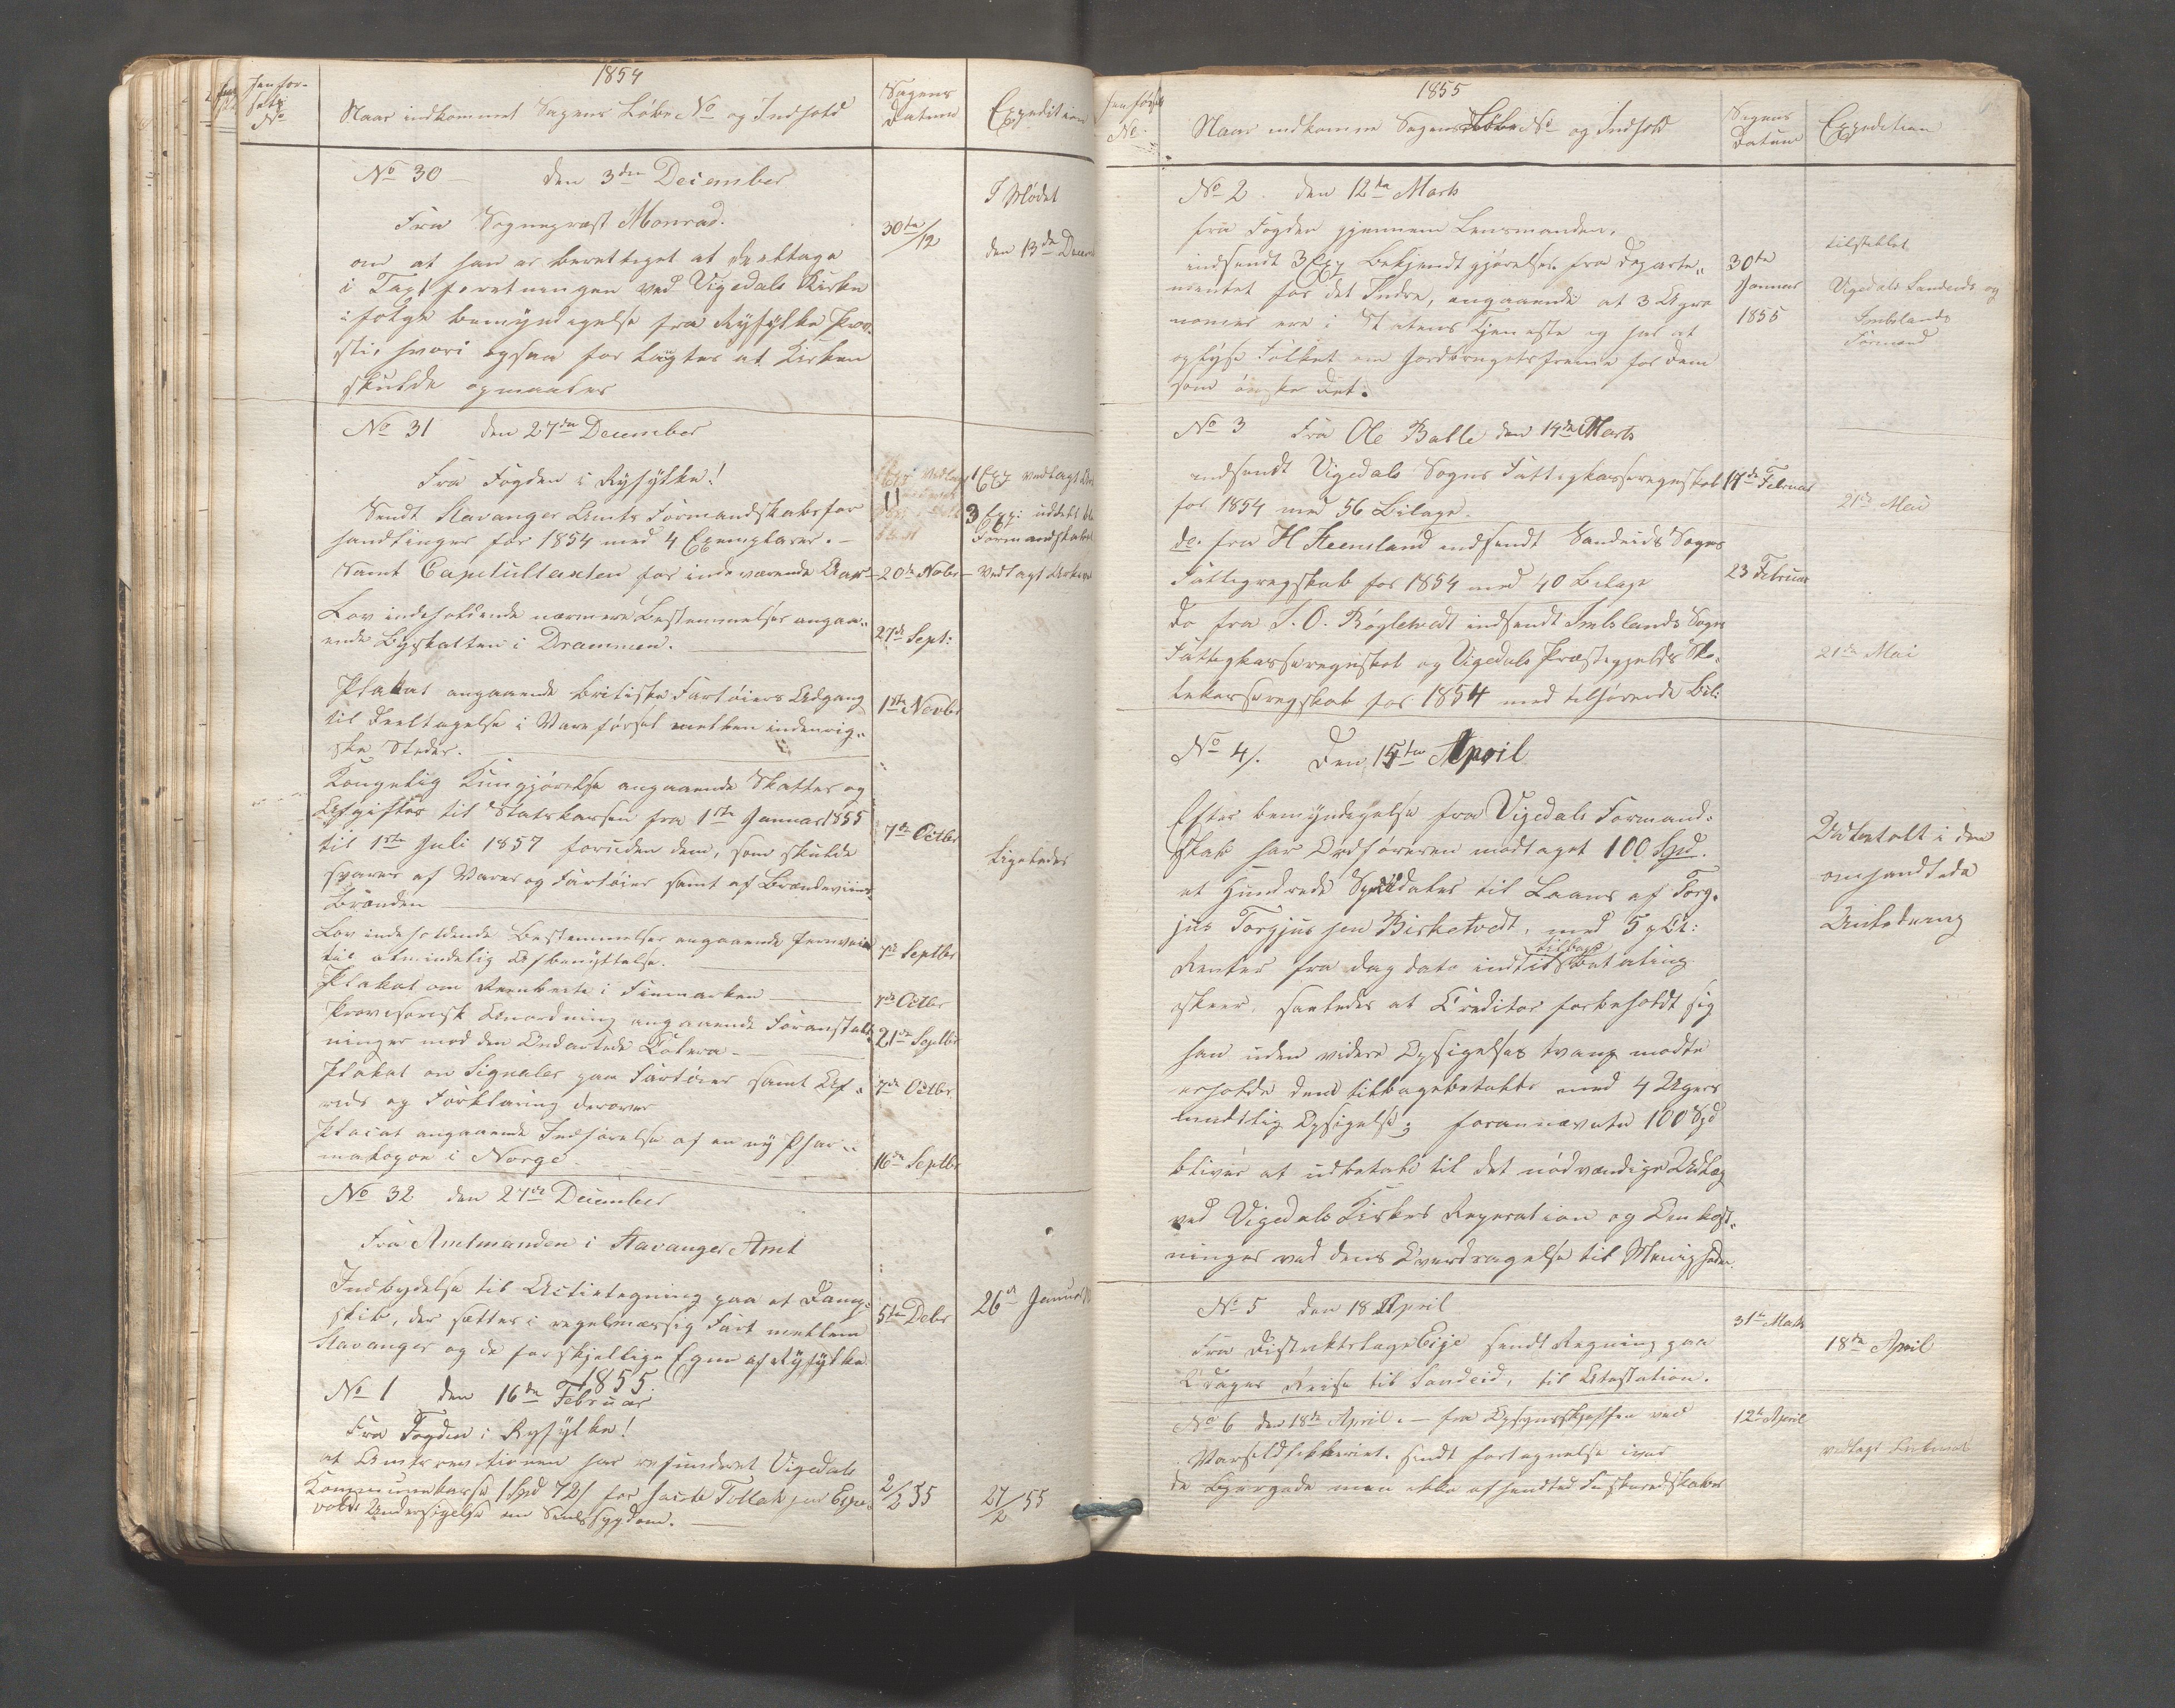 1854
Henfør-
sels
No
Naar indkommet Sagens Løbe No og Indhold
Sagens
Datum
Expedition
No 30 den 3die December
Fra Sogneprest Monrad.
30te/12
I Mødet
den 13de Decemb
om at han er berettiget at deeltage
i Taxtforretningen ved Vigedals Kirke
i følge bemyndigelse fra Ryfylke Prov-
sti, hvori ogsaa forlangtes at Kirken
skulde opmaales
No 31 den 27de December
Fra Fogden i Ryfylke!
Sendt Stavanger Amts Formandskabsfor
handlinger for 1854 med 4 Exemplarer.
1 Exp vedlagt
3 Exp: uddelt bl
Formandskabet
Samt Capitultaxten for indeværende Aar
20de Nobr
vedlagt Arkivet
Lov indeholdende nærmere Bestemmelser angaa-
ende Byskatten i Drammen.
27de Sept:
Plakat angaaende britiske Fartøiers Adgang
til Deeltagelse i Vareførsel mellem indenrig-
ske Steder.
1ste Novbr
Kongelig Kungjørelse angaaende Skatter og
Afgifter til Statskassen fra 1ste Januar 1855
til 1ste Juli 1857 foruden dem, som skulde
svares af Varer og Fartøier samt af Brændeviins-
Brænden
7de Octbr
Ligeledes
Lov indeholdende Bestemmelser angaaende Jernveie
til almindelig Afbenyttelse.
7de Septbr
Plakat om Reenbeite i Finmarken
7de Octbr
Provisorisk Anordning angaaende Foranstalt-
ninger mod den Ondartede Colera
21de Septbr
Plakat om Signaler paa Fartøier samt Af-
rids og Forklaring derover
7de Octbr
Placat angaaende Indførelse af en ny Phar-
makopoe i Norge
16de Septbr
No 32 den 27de December
Fra Amtmanden i Stavanger Amt
Indbydelse til Actietegning paa et Damp-
skib, der sættes i regelmæssig Fart mellem
Stavanger og de forskjellige Egne af Ryfylke
5te Debr
26de Januar
1855
No 1 den 16de Februar
Fra Fogden i Ryfylke!
at Amtsrevisionen har refunderet Vigedals
Kommunekasse 1 Spd 72 s for Jacob Tollaksen Espe-
volds Undersøgelse om Sindssygdom.
2/2 55
27/2 55
1855
Henførsel
No
Naar indkomne Sagens Løbe No og Indhold
Sagens
Datum
Expedition
No 2. den 12te Marts
fra Fogden gjennem Lensmanden,
indsendt 3 Exp Bekjendtgjørelse fra Departe-
mentet for det Indre, angaaende at 3 Agro
nomer ere i Statens Tjeneste og har at
oplyse Folket om Jordbrugets fremme for dem
som ønske det.
30te
Januar
1855
tilstillet
Vigedals Sandeids og
Imslands
Formænd
No 3 Fra Ole Balle den 14de Marts
indsendt Vigedals Sogns Fattigkasseregnskab
for 1854 med 56 Bilage.
17de Februar
21de Mai
do. fra H Steensland indsendt Sandeids Sogns
Fattigregskab for 1854 med 40 Bilage
23 Februar
Do fra S. O. Røgletvedt indsendt Imslands Sogns
Fattigkasseregnskab og Vigedals Præstegjelds Sko-
lekasseregskab for 1854 med tilhørende Bil:
21de Mai
No 4. Den 15te April
Efter bemyndigelse fra Vigedals Formand-
skab har Ordføreren modtaget 100 Spd.
et Hundrede Speciedaler til Laans af Torg-
jus Torgjussen Birketvedt, med 5 pCt:
Renter fra dag dato indtil tilbagebetaling
skeer, saaledes at Creditor forbeholdt sig
han uden videre Opsigelses tvang maatte
erholde dem tilbagebetalte med 4 Ugers
mundtlig Opsigelse; forannævnte 100 Spd
bliver at udbetale til det nødvendige Udlæg
ved Vigedals Kirkes Reperation og Omkost-
ninger ved dens Overdragelse til Menigheden.
Udbetalt i den
omhandlede
Anledning
No 5 den 18 April
Fra Distriktslæge Eije sendt Regning paa
2 Dages Reise til Sandeid, til Atestation.
31te Marts
18de April
No 6 den 18de April. – fra Opsynschefen ved
Vaarsildfiskeriet. sendt fortegnelse over
de Bjergede men ikke afhendted Fiskeredskaber
12te April
vedlagt